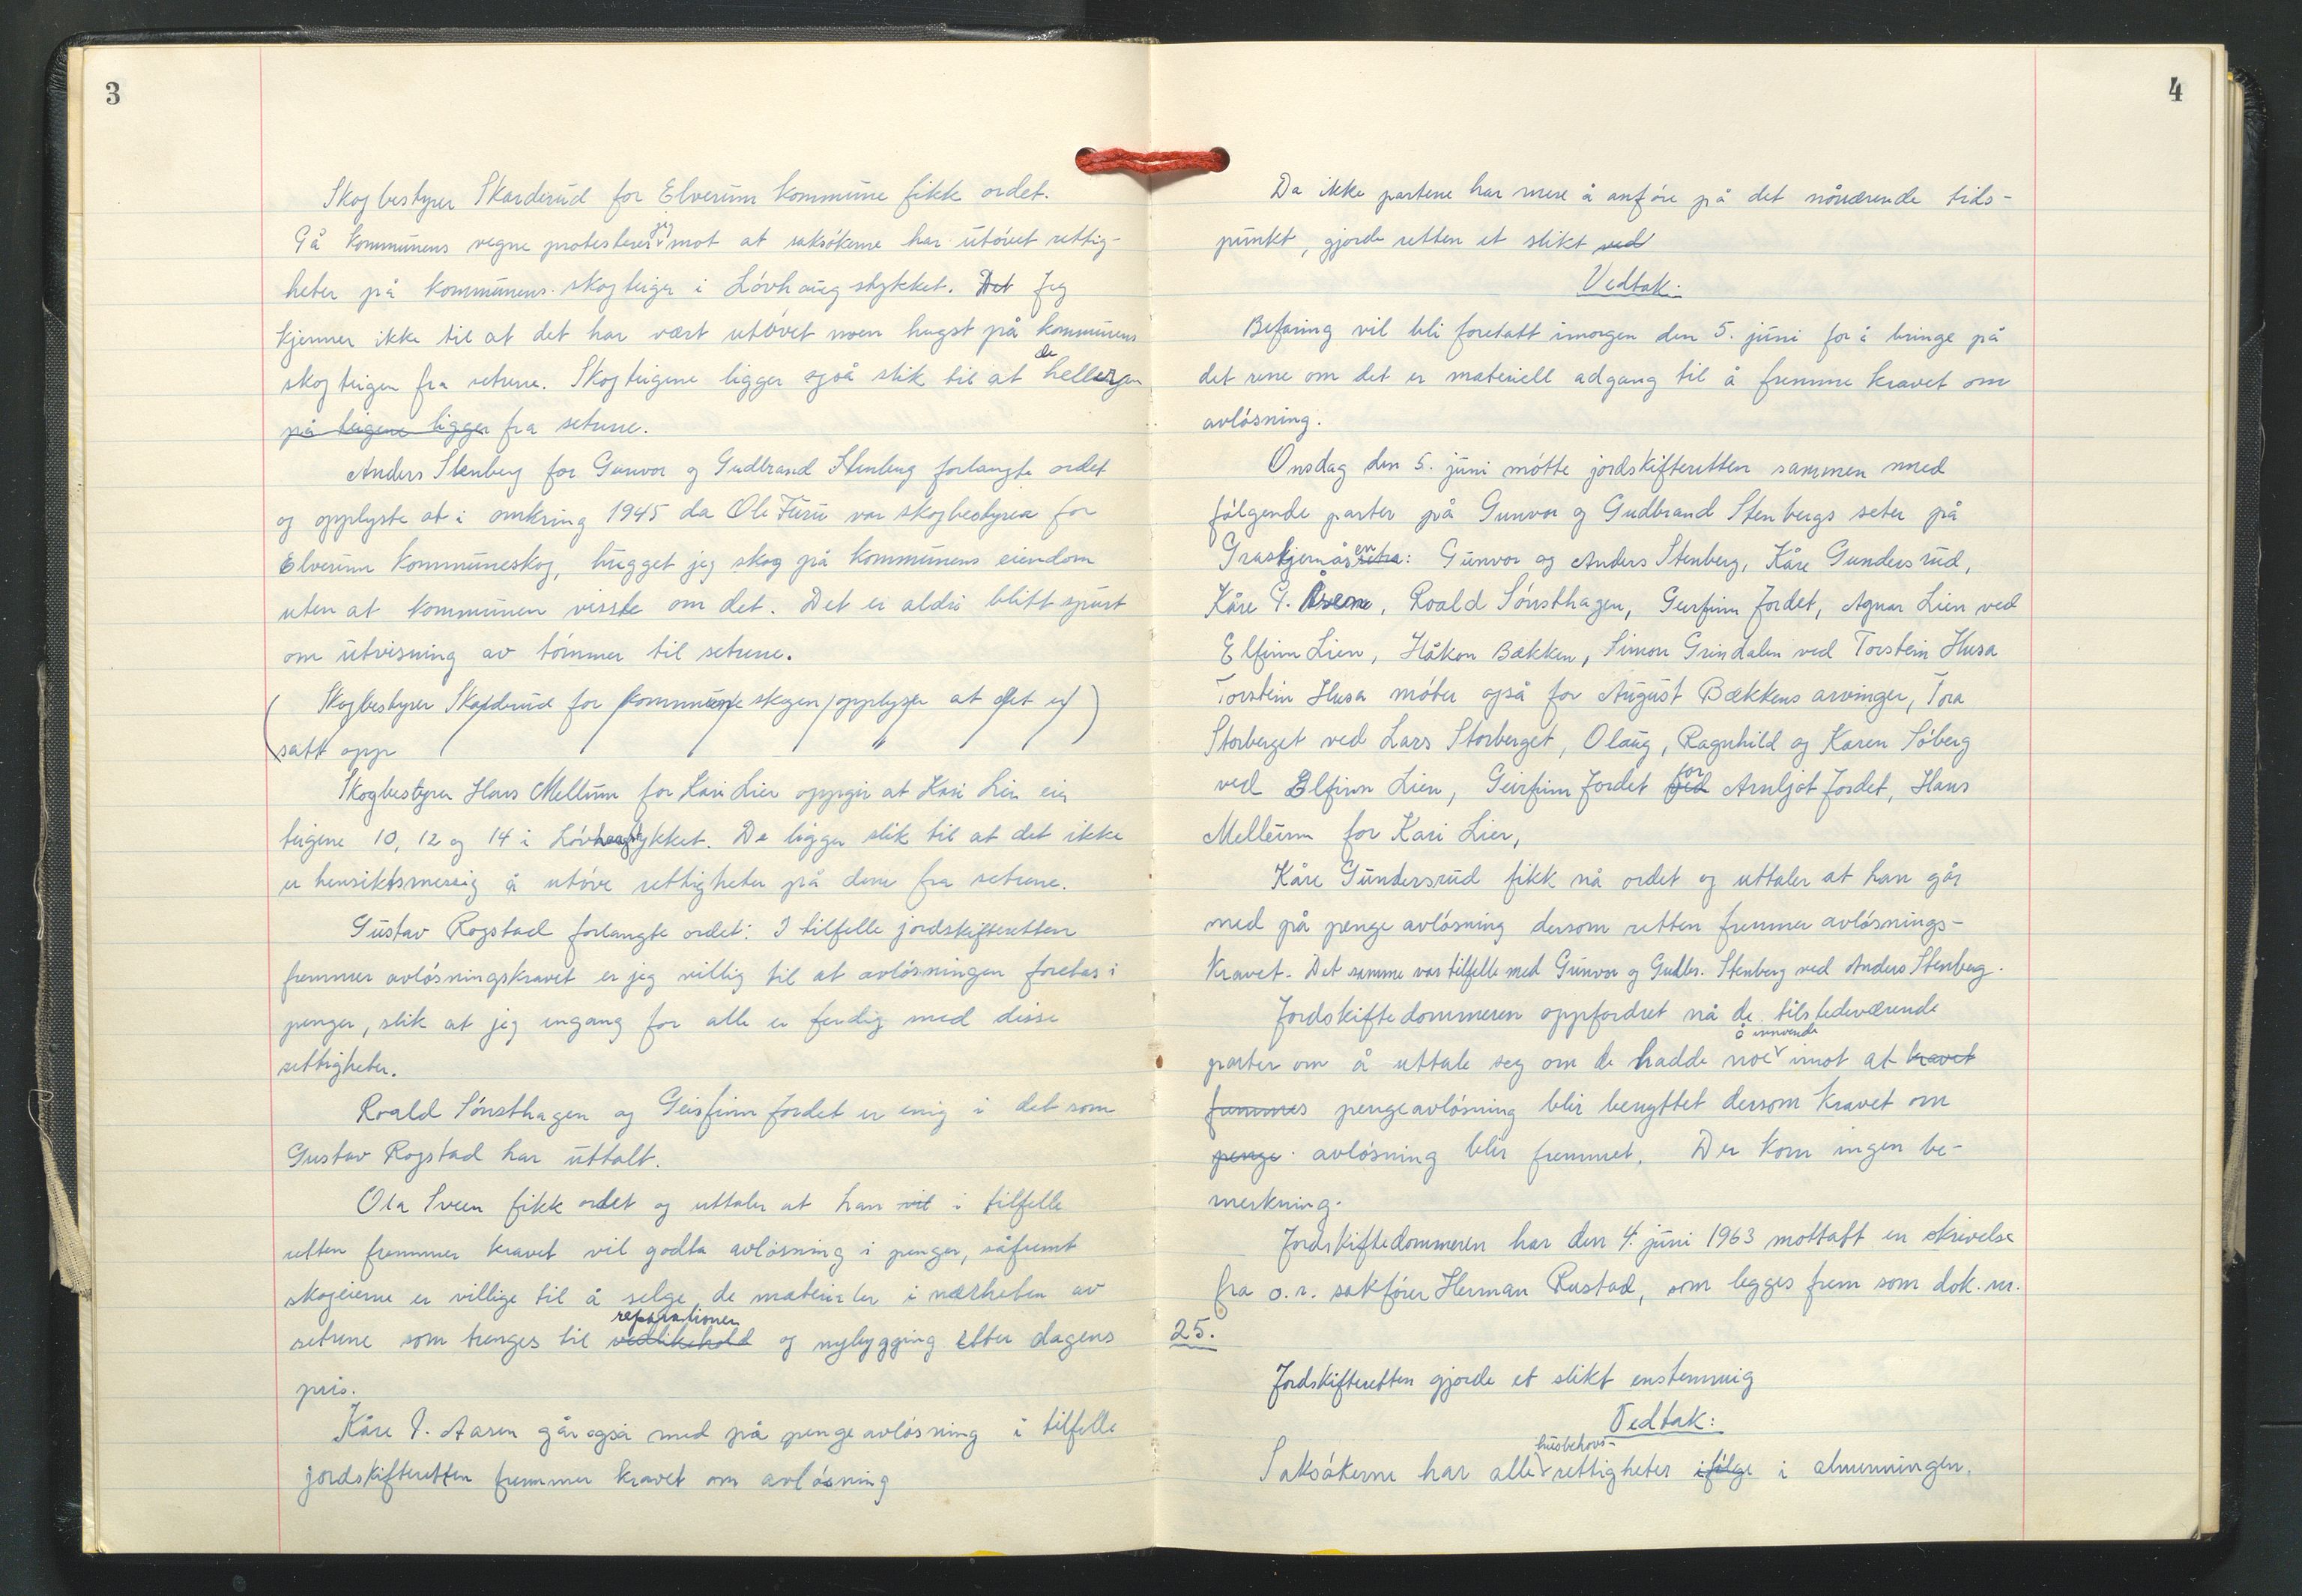 3
Skogbestyrer Skarderud for Elverum kommune fikk ordet.
På kommunens vegne protesterer jeg mot at saksökerne har utövet rettig-
heter på kommunens skogteiger i Lövhaugstykket. Det Jeg
kjenner ikke til at det har vært utövet noen hugst på kommunens
skogteigen fra setrene. Skogteigene ligger også slik til at de heller
på teigene ligger fra setrene.
Anders Stenberg for Gunvor og Gudbrand Stenberg forlangte ordet
og opplyste at i omkring 1945 da Ole Furu var skogbestyrer for
Elverum kommuneskog, hugget jeg skog på kommunens eiendom
uten at kommunen visste om det. Det er aldri blitt spurt
om utvisning av tömmer til setrene.
(Skogbestyrer Skarderud for kommuneskogen opplyser at det er)
satt opp
Skogbestyrer Hans Mellum for Kari Lier oppgir at Kari Lier eier
teigene 10, 12 og 14 i Lövhaugstykket. De ligger slik til at det ikke
er hensiktsmessig å utöve rettigheter på dem fra setrene.
Gustav Rogstad forlangte ordet: I tilfelle jordskifteretten
fremmer avlösningskravet er jeg villig til at avlösningen foretas i
penger, slik at jeg engang for alle er ferdig med disse
rettigheter.
Roald Sönsthagen og Geirfinn Jordet er enig i det som
Gustav Rogstad har uttalt.
Ola Sveen fikk ordet og uttaler at han vil i tilfelle
retten fremmer kravet vil godta avlösning i penger, såfremt
skogeierne er villige til å selge de materialer i nærheten av
setrene som trenges til vedlikehold reparationer og nybygging etter dagens
pris.
Kåre P. Aasen går også med på pengeavlösning i tilfelle
jordskifteretten fremmer kravet om avlösning
4
Da ikke partene har mere å anföre på det nåværende tids-
punkt, gjorde retten et slikt ved
Vedtak:
Befaring vil bli foretatt imorgen den 5. juni for å bringe på
det rene om det er materiell adgang til å fremme kravet om
avlösning.
Onsdag den 5. juni mötte jordskifteretten sammen med
fölgende parter på Gunvor og Gudbrand Stenbergs seter på
Graskjernåsen setra: Gunvor og Anders Stenberg, Kåre Gundersrud,
Kåre P. Åsen, Roald Sönsthagen, Geirfinn Jordet, Agnar Lien ved
Elfinn Lien, Håkon Bækken, Simon Grindalen ved Torstein Husa
Torstein Husa möter også for August Bækkens arvinger, Tora
Storberget ved Lars Storberget, Olaug, Ragnhild og Karen Söberg
ved Elfinn Lien, Geirfinn Jordet ved for Arnljot Jordet, Hans
Mellum for Kari Lier,
Kåre Gundersrud fikk nå ordet og uttaler at han går
med på penge avlösning dersom retten fremmer avlösnings-
kravet. Det samme var tilfelle med Gunvor og Gudbr. Stenberg ved Anders Stenberg.
Jordskiftedommeren oppfordret nå de tilstedeværende
parter om å uttale seg om de hadde noe å innvende imot at kravet
fremmes pengeavlösning blir benyttet dersom kravet om
penge avlösning blir fremmet. Der kom ingen be-
merkning.
Jordskiftedommeren har den 4. juni 1963 mottatt en skrivelse
fra o.r. sakförer Herman Rustad, som legges frem som dok. nr.
25.
Jordskifteretten gjorde et slikt enstemmig
Vedtak:
Saksökerne har alle husbehovs- rettigheter ifölge i almenningen.